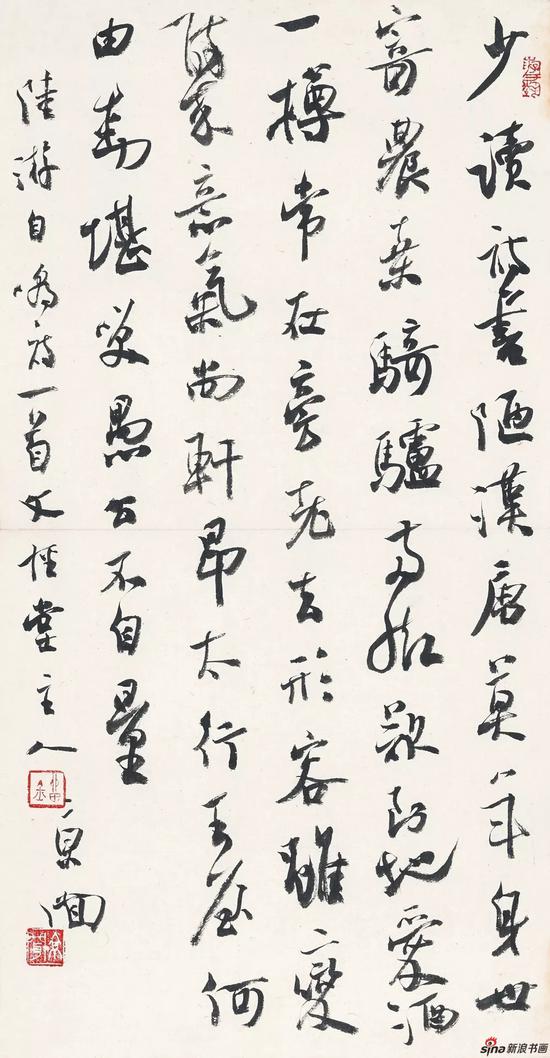 少讀詩書陋漢唐莫年身世
寄農桒騎驢兩脚欲到地愛酒
一樽常在旁老去形容雖變
醉來意氣尚軒昂太行王屋何
由動堪笑愚公不自量
陸游自嘲詩一首文堂主人
sina新浪书画